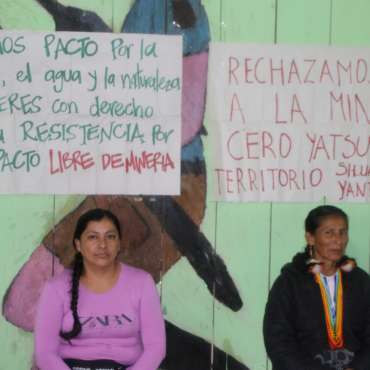 MOS PACTO POR la
, el agua y la naturaleza
ERES con derecho
RESISTENCIA por
PACTO LIBRE DE MINERIA
RECHAZAMO
A LA MIN
CERO YATSU
TERRITORIO SHUA
YANT
ZARA